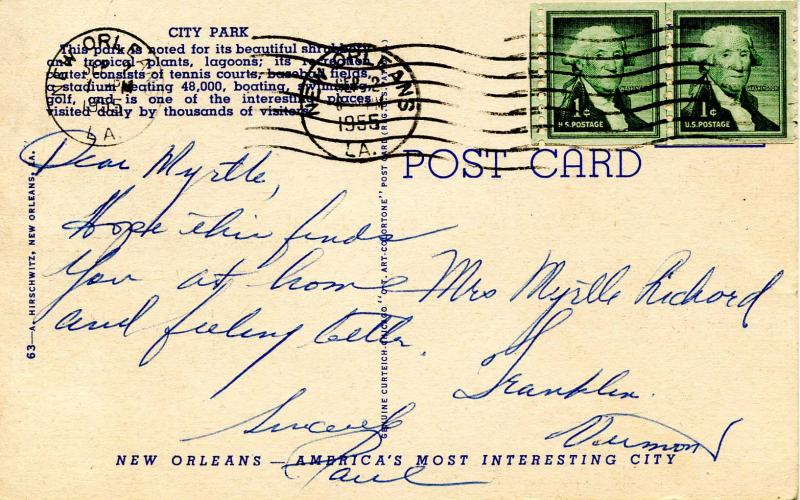 CITY PARK
This park is noted for its beautiful shrubbery
and tropical plants, lagoons; its recreation
center consists of tennis courts, baseball fields,
a stadium seating 48,000, boating, swimming,
golf, and is one of the interesting places
visited daily by thousands of visitors.
NEW ORLEANS
SEP
1955
LA.
NEW ORLEANS
SEP 2
1955
LA.
WASHINGTON
1¢
U.S. POSTAGE
WASHINGTON
1¢
U.S. POSTAGE
POST CARD
63—A. HIRSCHWITZ, NEW ORLEANS, LA.
GENUINE CURTEICH-CHICAGO "C.T. ART-COLORTONE" POST CARD (REG. U.S. PAT. OFF.)
Dear Myrtle,
Hope this finds
you at home
and feeling better.
Sincerely
Paul
Mrs Myrtle Richord
Franklin
Vermont
NEW ORLEANS — AMERICA'S MOST INTERESTING CITY